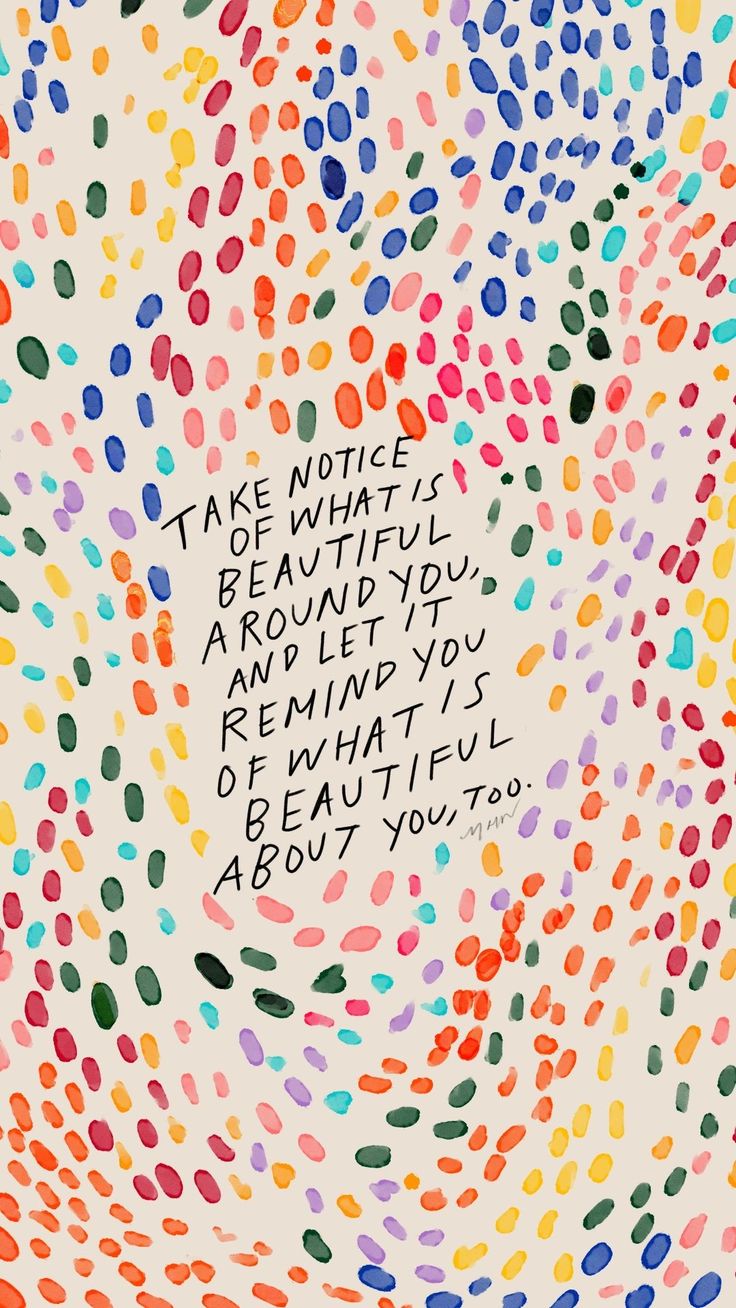 TAKE NOTICE
OF WHAT IS
BEAUTIFUL
AROUND YOU,
AND LET IT
REMIND YOU
OF WHAT IS
BEAUTIFUL
ABOUT YOU, TOO.
MHN